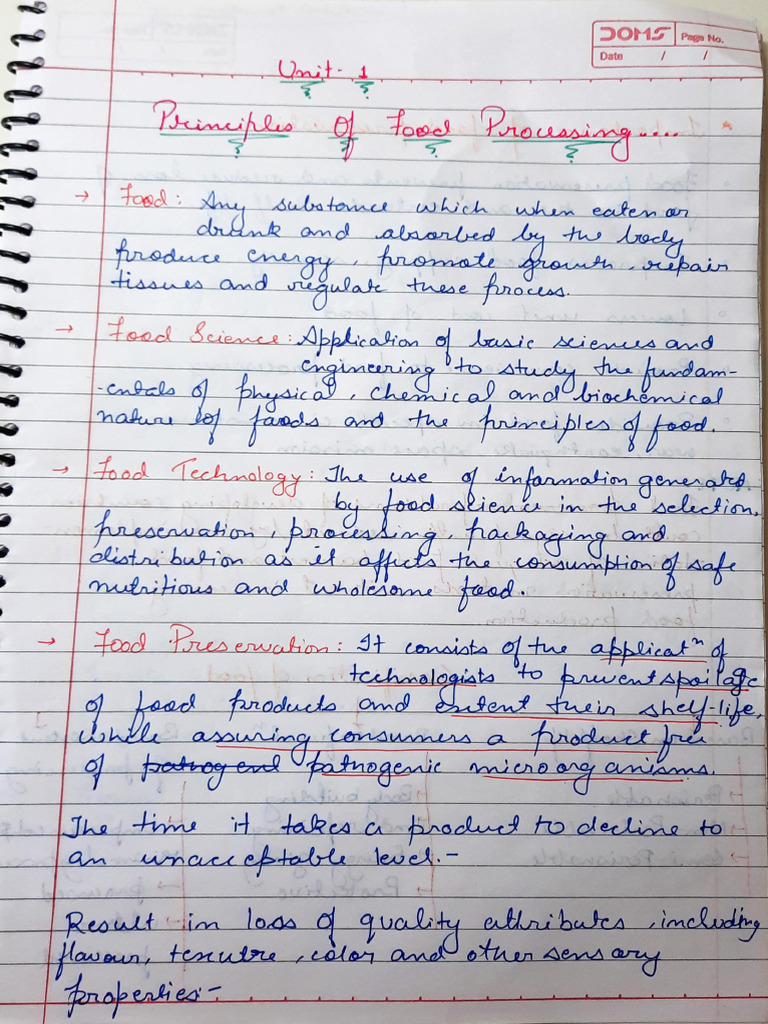 DOMS Page No.
Date / /
Unit - 1
Principles Of Food Processing....
→ Food: Any substance which when eaten or
drank and absorbed by the body
produce energy, promote growth, repair
tissues and regulate these process.
→ Food Science: Application of basic sciences and
engineering to study the fundam-
-entals of physical, chemical and biochemical
nature of foods and the principles of food.
→ Food Technology: The use of information generated
by food science in the selection,
preservation, processing, packaging and
distribution as it affects the consumption of safe
nutritious and wholesome food.
→ Food Preservation: It consists of the applicatⁿ of
technologists to prevent spoilage
of food products and extent their shelf-life,
while assuring consumers a product free
of pathogenic microorganisms.
The time it takes a product to decline to
an unacceptable level.-
Result in loss of quality attributes, including
flavour, texutre, color and other sensory
properties-